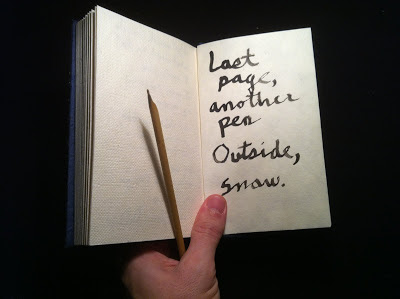 Last
page,
another
pen
Outside,
snow.